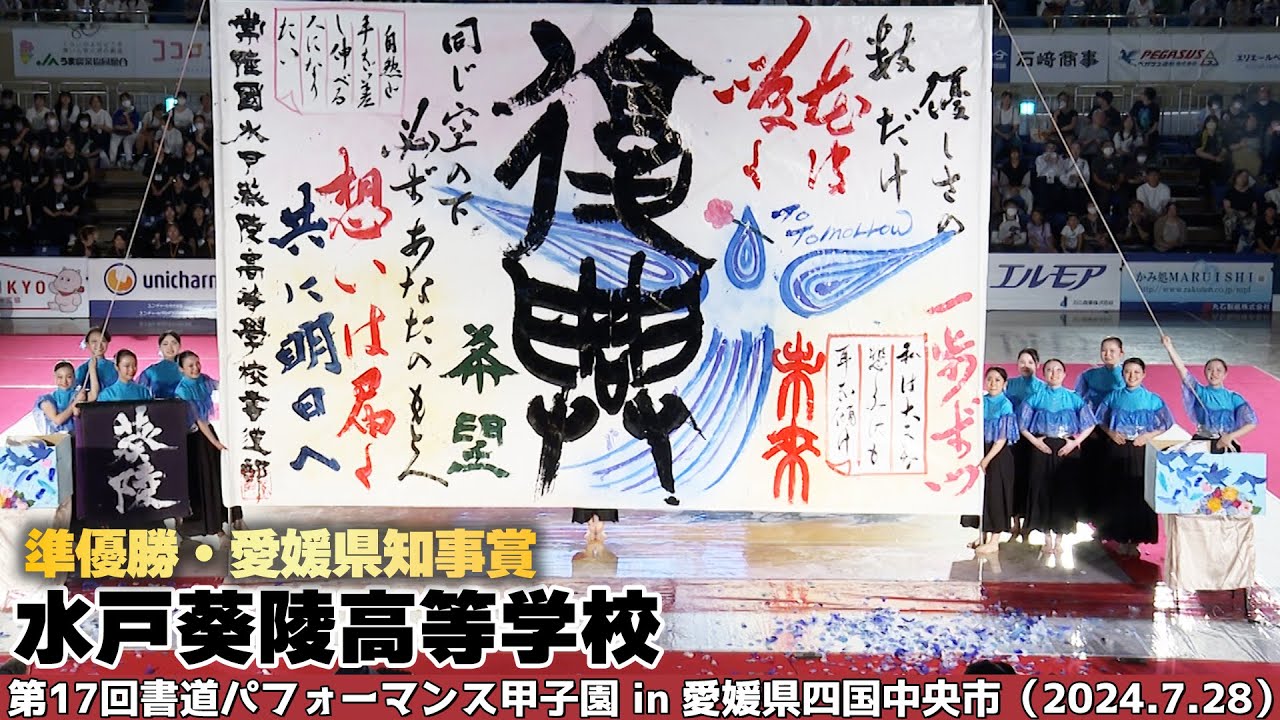 JAうま農業協同組合
ココ
石崎商事
PEGASUS
エリエール
優しさの
数だけ
花は
咲く
To
Tomorrow
一歩ずつ
私は大きな
悲しみにも
耳を傾け
未来
復興
希望
同じ空の下
必ずあなたのもとへ
想いは届く
共に明日へ
自然に
手を差
し伸べる
人になり
たい
常陸國水戸葵陵高等學校書道部
KYO
unicharm
エルモア
かみ処MARUISHI
葵陵
準優勝・愛媛県知事賞
水戸葵陵高等学校
第17回書道パフォーマンス甲子園 in 愛媛県四国中央市（2024.7.28）